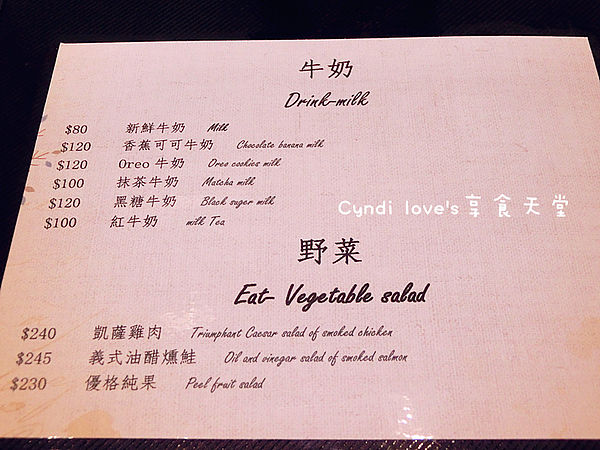 牛奶
Drink-milk
$80 新鮮牛奶 Milk
$120 香蕉可可牛奶 Chocolate banana milk
$120 Oreo 牛奶 Oreo cookies milk
$100 抹茶牛奶 Matcha milk
$120 黑糖牛奶 Black suger milk
$100 紅牛奶 milk Tea
Cyndi love's 享食天堂
野菜
Eat- Vegetable salad
$240 凱薩雞肉 Triumphant Caesar salad of smoked chicken
$245 義式油醋燻鮭 Oil and vinegar salad of smoked salmon
$230 優格純果 Peel fruit salad